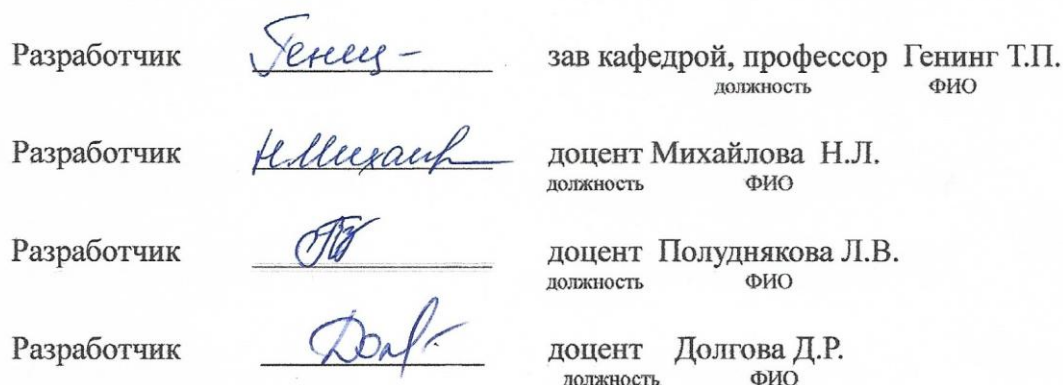 Разработчик зав кафедрой, профессор Генинг Т.П.
должность ФИО
Разработчик Н.Михайл доцент Михайлова Н.Л.
должность ФИО
Разработчик доцент Полуднякова Л.В.
должность ФИО
Разработчик Долг доцент Долгова Д.Р.
должность ФИО